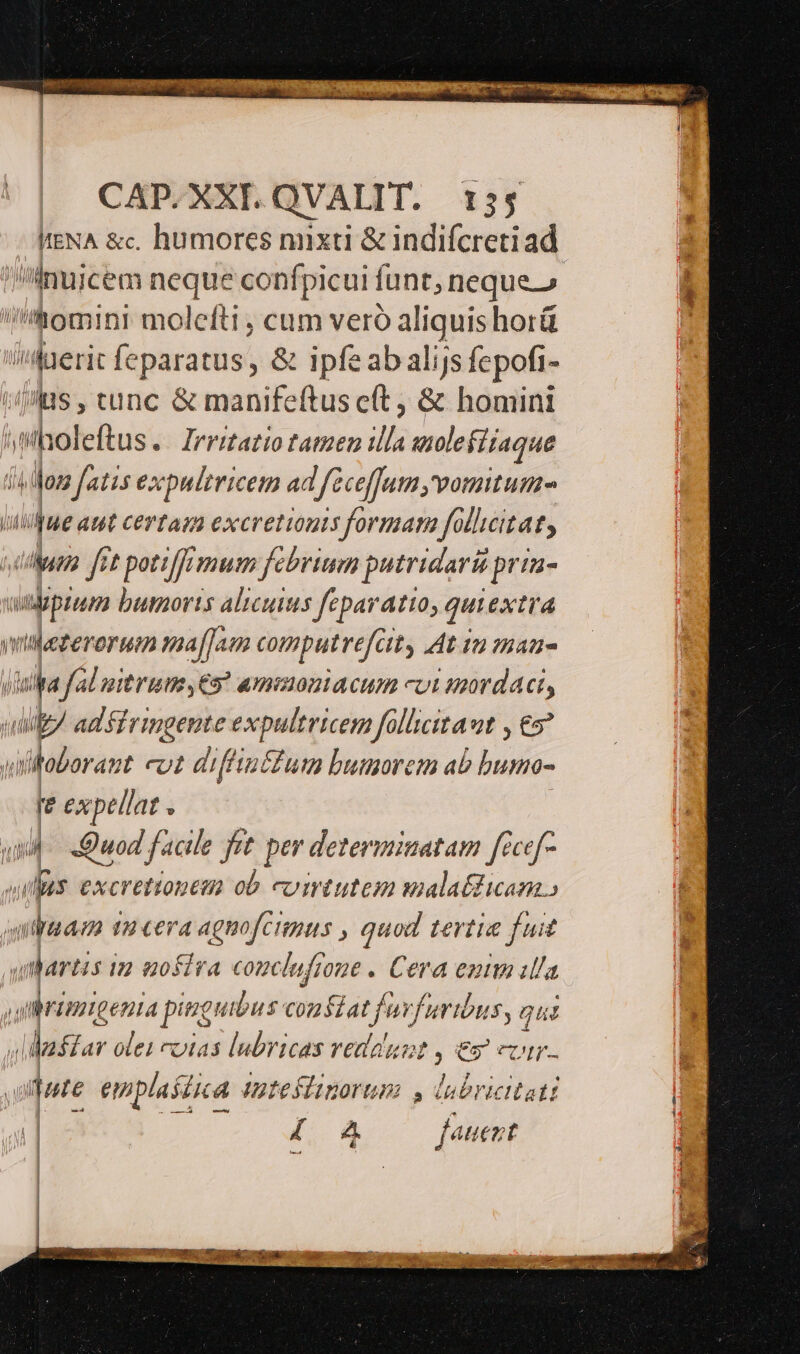 CAP. XXI. QVALIT. 135
MENA &c. humores mixti & indiſcreti ad
inuicem neque conſpicui ſunt, neque
homini moleſti, cum verò aliquis horū
fuerit ſeparatus, & ipſe ab alijs ſepoſi-
tus, tunc & manifeſtus eſt, & homini
moleſtus. Irritatio tamen illa moleſtiaque
non ſatis expultricem ad ſeceſſum, vomitum-
que aut certam excretionis formam ſollicitat,
fit potiſſimum febrium putridarū prin-
cipium humoris alicuius ſeparatio, qui extra
ceterorum maſſam computreſcit, At in man-
na ſal nitrum, & ammoniacum vi mordaci,
& adſtringente expultricem ſollicitant, &
roborant vt diſtinctum humorem ab humo-
re expellat.
Quod facile fit per determinatam ſeceſ-
ſus excretionem ob virtutem malacticam
quam in cera agnoſcimus, quod tertiæ fuit
partis in noſtra concluſione. Cera enim illa
primigenia pinguibus conſtat furfuribus, qui
inſtar olei vias lubricas reddunt, & vir-
tute emplaſtica inteſtinorum, lubricitati
I 4 fauent